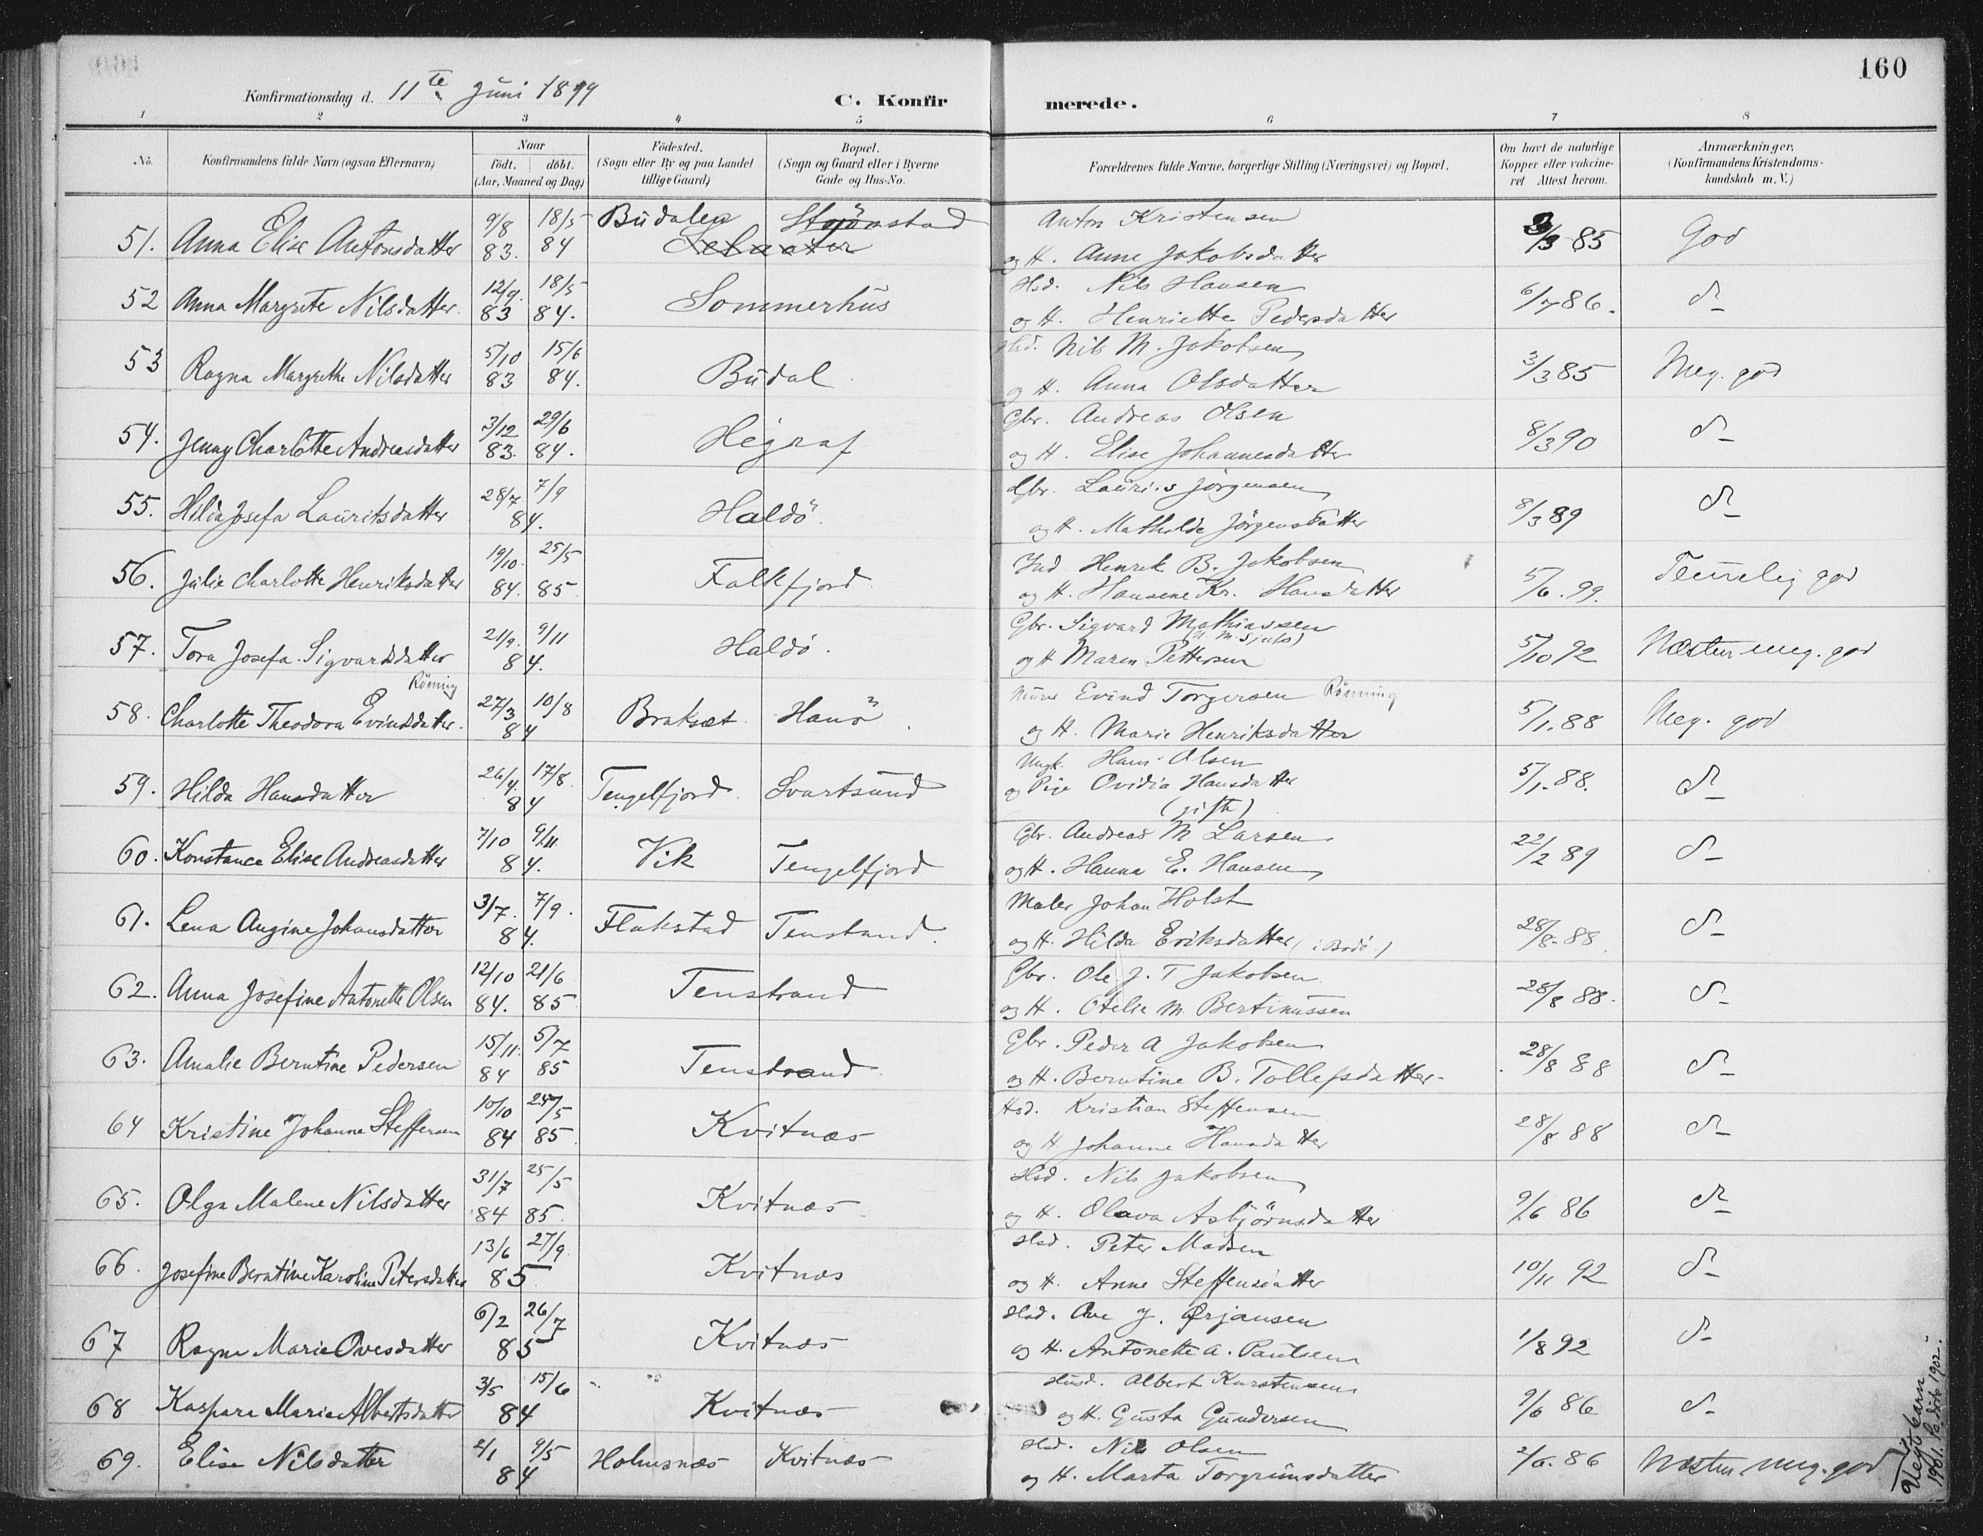 160
Konfirmationsdag d. 11te Juni 1899
C. Konfirmerede.
1 2 3 4 5 6 7 8
No. Konfirmandens fulde Navn (ogsaa Efternavn) Naar födt. döbt. (Aar, Maaned og Dag) Födested. (Sogn eller By og paa Landet tillige Gaard) Bopæl. (Sogn og Gaard eller i Byerne Gade og Hus-No. Forældrenes fulde Navne, borgerlige Stilling (Næringsvei) og Bopæl. Om havt de naturlige Kopper eller vakcineret Attest herom. Anmærkninger. (Konfirmandens Kristendomskundskab m. V.)
9/8 18/5 Budalen Anton Kristensen
51. Anna Elise Antonsdatter 83. 84 og H. Anne Jakobsdatter 3/3 85 God
12/9. 18/5 Hsd. Nils Hansen
52 Anna Margrete Nilsdatter. 83 84. Sommerhus og H. Henriette Pedersdatter 6/7 86. d-
5/10 15/6 Hsd. Nils M. Jakobsen
53 Ragna Margrethe Nilsdatter 83 84. Budal og H. Anna Olsdatter 3/3 85 Meg. god
3/12 29/6 Gbr. Andreas Olsen
54. Jenny Charlotte Andreasdatter 83. 84. Hegraf og H. Elise Johannesdatter 8/3 90 d-
28/7 7/9 Gbr. Laurits Jørgensen
55. Hilda Josefa Lauritsdatter 84. Haldö. og H. Mathilde Jörgensdatter 8/3 89 d-
19/10. 25/5 Ind Henrik B. Jakobsen
56. Julie Charlotte Henriksdatter 84. 85. Falkfjord og H. Hansine Kr. Hansdatter 5/6. 99. Temelig god
21/9. 9/11 Gbr. Sigvard Mathiassen
57. Tora Josefa Sigvardsdatter 84. Haldö. og H Maren Pettersen 5/10 92 Næsten meg. god
Rönning
27/3 10/8 Evind Torgersen Rönning
58. Charlotte Theodora Evindsdatter. 84 Braksæt Hanö og H. Marie Henriksdatter 5/1. 88 Meg. god
26/4. 17/8. Ungk. Hans Olsen
59. Hilda Hansdatter 84 Tengelfjord Svartsund og Pige Ovidia Hansdatter 5/1. 88. d-
(gift)
7/10 9/11 Gbr. Andreas M Larsen
60. Konstance Elise Andreasdatter 84. Vik Tengelfjord og H. Hanna E. Hansen 22/2 89 d-
3/7. 7/9. Maler Johan Holst
61. Lena Angine Johansdatter 84. Flakstad Tenstrand. og H. Hilda Eriksdatter (i Bodö) 28/8. 88 d-
12/10 21/6 Gbr. Ole J. T Jakobsen
62. Anna Josefine Antonette Olsen 84. 85. Tenstrand og H. Otelie M Bertinussen 28/8 88. d-
15/11. 5/7 Gbr. Peder A Jakobsen
63. Amalie Berntine Pedersen 84 85 Tenstrand og H. Berntine B. Tollefsdatter. 28/8 88 d-
10/10 25/5 Hsd. Kristian Steffensen
64 Kristine Johanne Steffensen 84 85. Kvitnæs og H Johanne Hansdatter 28/8 88 d-
31/7 25/5 Hsd. Nils Jakobsen
65. Olga Malene Nilsdatter 84 85. Kvitnæs og H. Olava Asbjörnsdatter 9/6 86 d-
13/6 27/9 Hsd. Peter Madsen
66. Josefine Berntine Karoline Petersdatter 85 Kvitnæs og H. Anne Steffensdatter 10/11 92 d-
6/2 26/7 Hsd. Ove J. Ørjansen
67 Ragna Marie Ovesdatter 85 Kvitnæs og H. Antonette A. Paulsen 1/8 92 d-
3/5 15/6 Husd. Albert Karstensen
68 Kaspara Marie Albertsdatter 84 Kvitnæs og H. Gusta Gundersen 9/6 86 d-
2/1 9/5 Hsd. Nils Olsen
69. Elise Nilsdatter 84 Holmsnæs Kvitnæs og H. Marta Torgrimsdatter 2/6. 86 Næsten meg. god